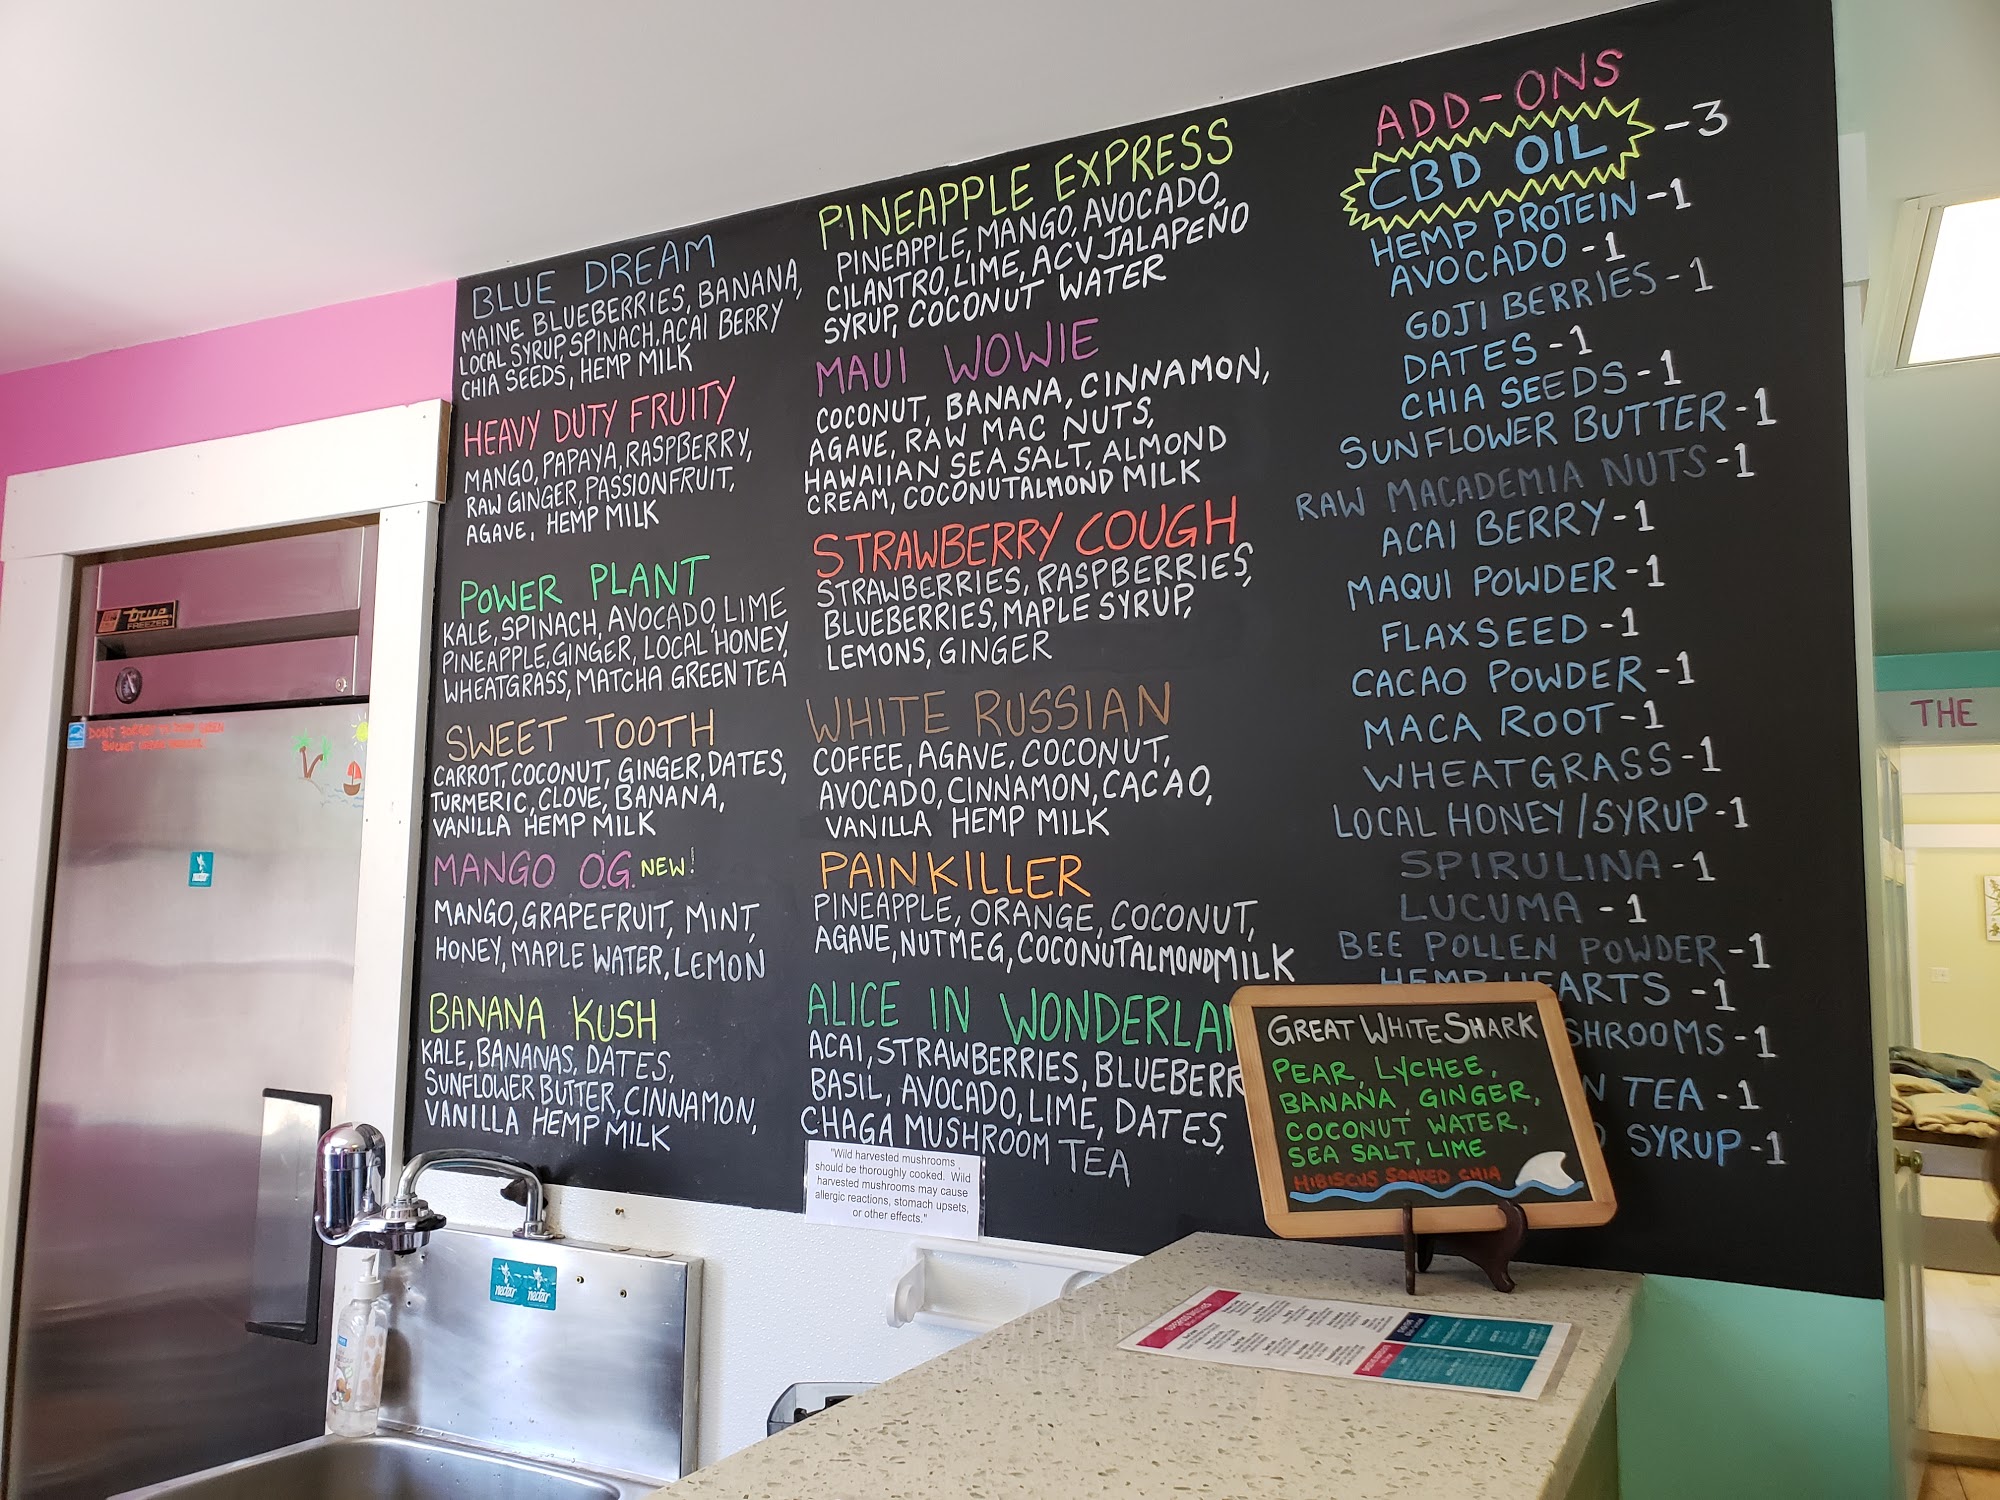 BLUE DREAM
MAINE BLUEBERRIES, BANANA,
LOCAL SYRUP, SPINACH, ACAI BERRY
CHIA SEEDS, HEMP MILK
HEAVY DUTY FRUITY
MANGO, PAPAYA, RASPBERRY,
RAW GINGER, PASSIONFRUIT,
AGAVE, HEMP MILK
POWER PLANT
KALE, SPINACH, AVOCADO, LIME
PINEAPPLE, GINGER, LOCAL HONEY,
WHEATGRASS, MATCHA GREEN TEA
SWEET TOOTH
CARROT, COCONUT, GINGER, DATES,
TURMERIC, CLOVE, BANANA,
VANILLA HEMP MILK
MANGO O.G. NEW!
MANGO, GRAPEFRUIT, MINT,
HONEY, MAPLE WATER, LEMON
BANANA KUSH
KALE, BANANAS, DATES,
SUNFLOWER BUTTER, CINNAMON,
VANILLA HEMP MILK
PINEAPPLE EXPRESS
PINEAPPLE, MANGO, AVOCADO,
CILANTRO, LIME, ACV JALAPEÑO
SYRUP, COCONUT WATER
MAUI WOWIE
COCONUT, BANANA, CINNAMON,
AGAVE, RAW MAC NUTS,
HAWAIIAN SEA SALT, ALMOND
CREAM, COCONUTALMOND MILK
STRAWBERRY COUGH
STRAWBERRIES, RASPBERRIES,
BLUEBERRIES, MAPLE SYRUP,
LEMONS, GINGER
WHITE RUSSIAN
COFFEE, AGAVE, COCONUT,
AVOCADO, CINNAMON, CACAO,
VANILLA HEMP MILK
PAINKILLER
PINEAPPLE, ORANGE, COCONUT,
AGAVE, NUTMEG, COCONUTALMONDMILK
ALICE IN WONDERLAN
ACAI, STRAWBERRIES, BLUEBERR
BASIL, AVOCADO, LIME, DATES,
CHAGA MUSHROOM TEA
"Wild harvested mushrooms
should be thoroughly cooked. Wild
harvested mushrooms may cause
allergic reactions, stomach upsets,
or other effects."
ADD-ONS
CBD OIL -3
HEMP PROTEIN -1
AVOCADO -1
GOJI BERRIES -1
DATES -1
CHIA SEEDS -1
SUNFLOWER BUTTER -1
RAW MACADEMIA NUTS -1
ACAI BERRY -1
MAQUI POWDER -1
FLAXSEED -1
CACAO POWDER -1
MACA ROOT -1
WHEATGRASS -1
LOCAL HONEY/SYRUP -1
SPIRULINA -1
LUCUMA -1
BEE POLLEN POWDER -1
HEMP HEARTS -1
SHROOMS -1
N TEA -1
SYRUP -1
GREAT WHITE SHARK
PEAR, LYCHEE,
BANANA, GINGER,
COCONUT WATER,
SEA SALT, LIME
HIBISCUS SOAKED CHIA
THE
true
FREEZER
nectar nectar